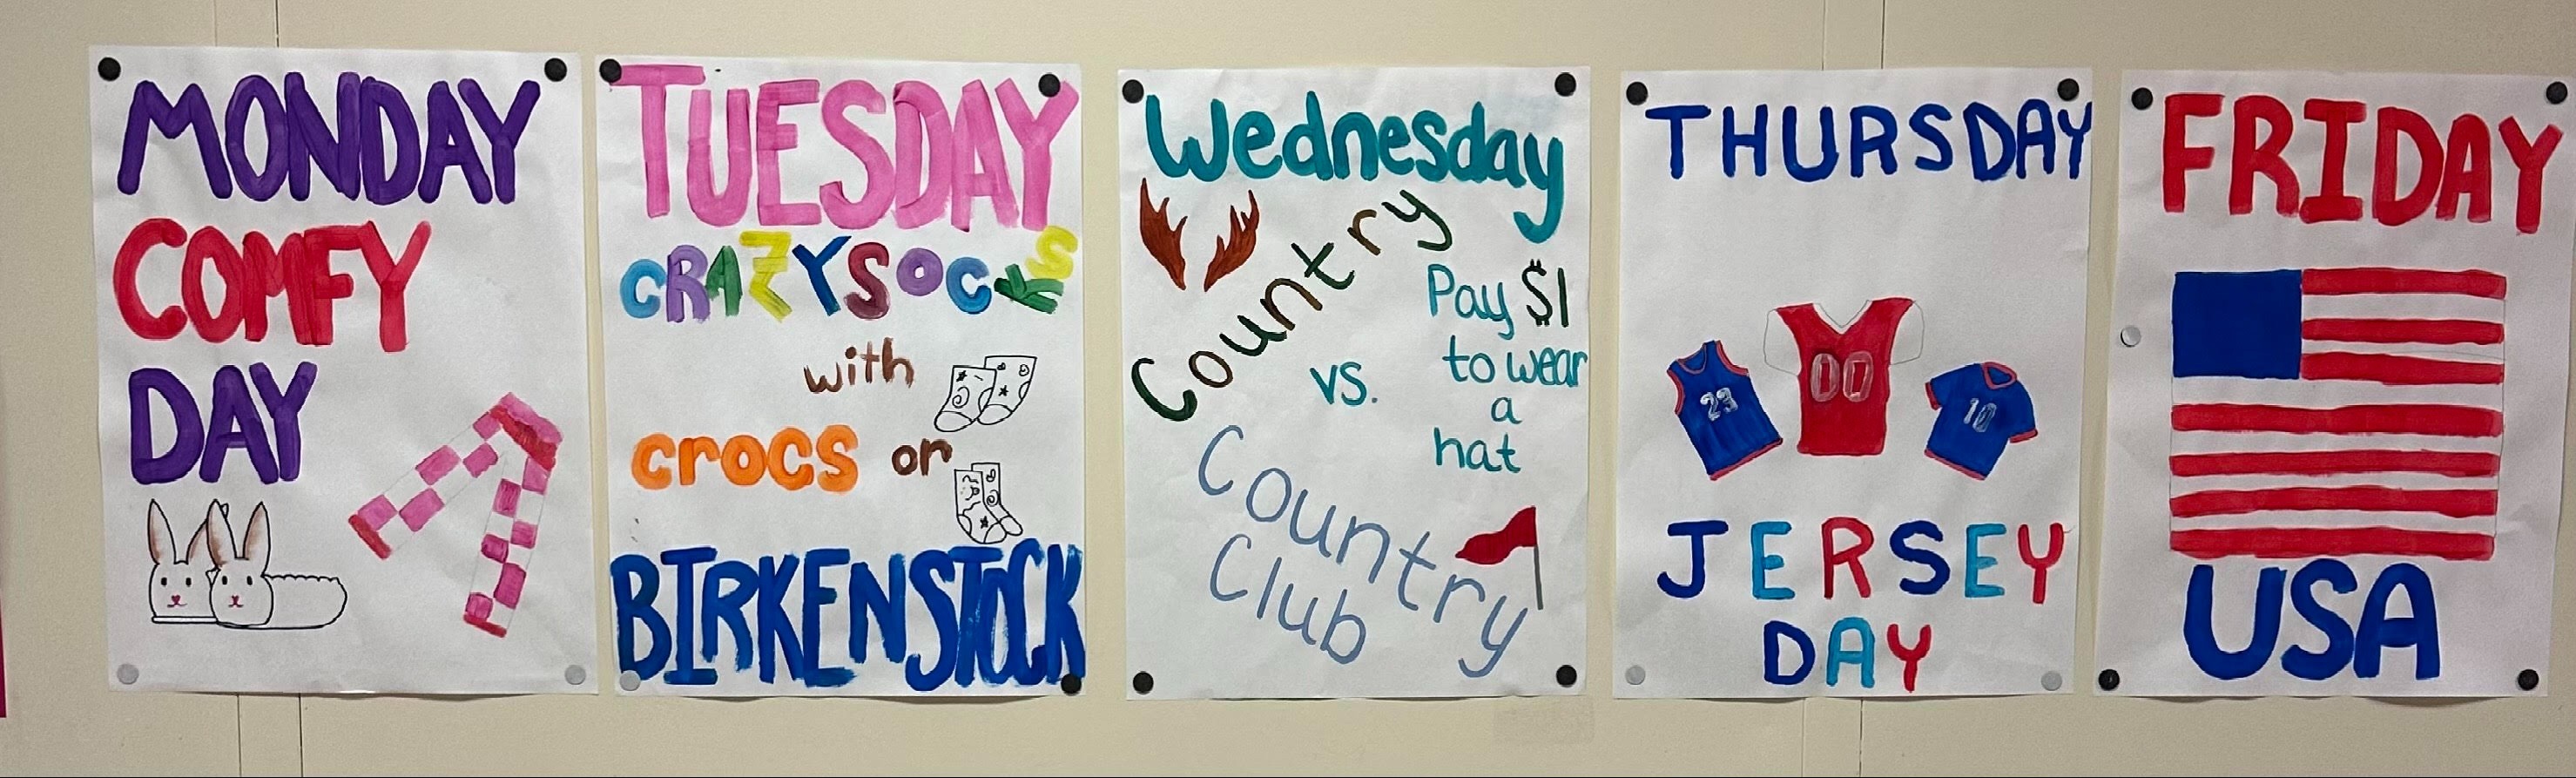 MONDAY
COMFY
DAY
TUESDAY
CRAZY SOCKS
with
crocs or
BIRKENSTOCK
Wednesday
Country
vs.
Country
Club
Pay $1
to wear
a
hat
THURSDAY
23
00
10
JERSEY
DAY
FRIDAY
USA